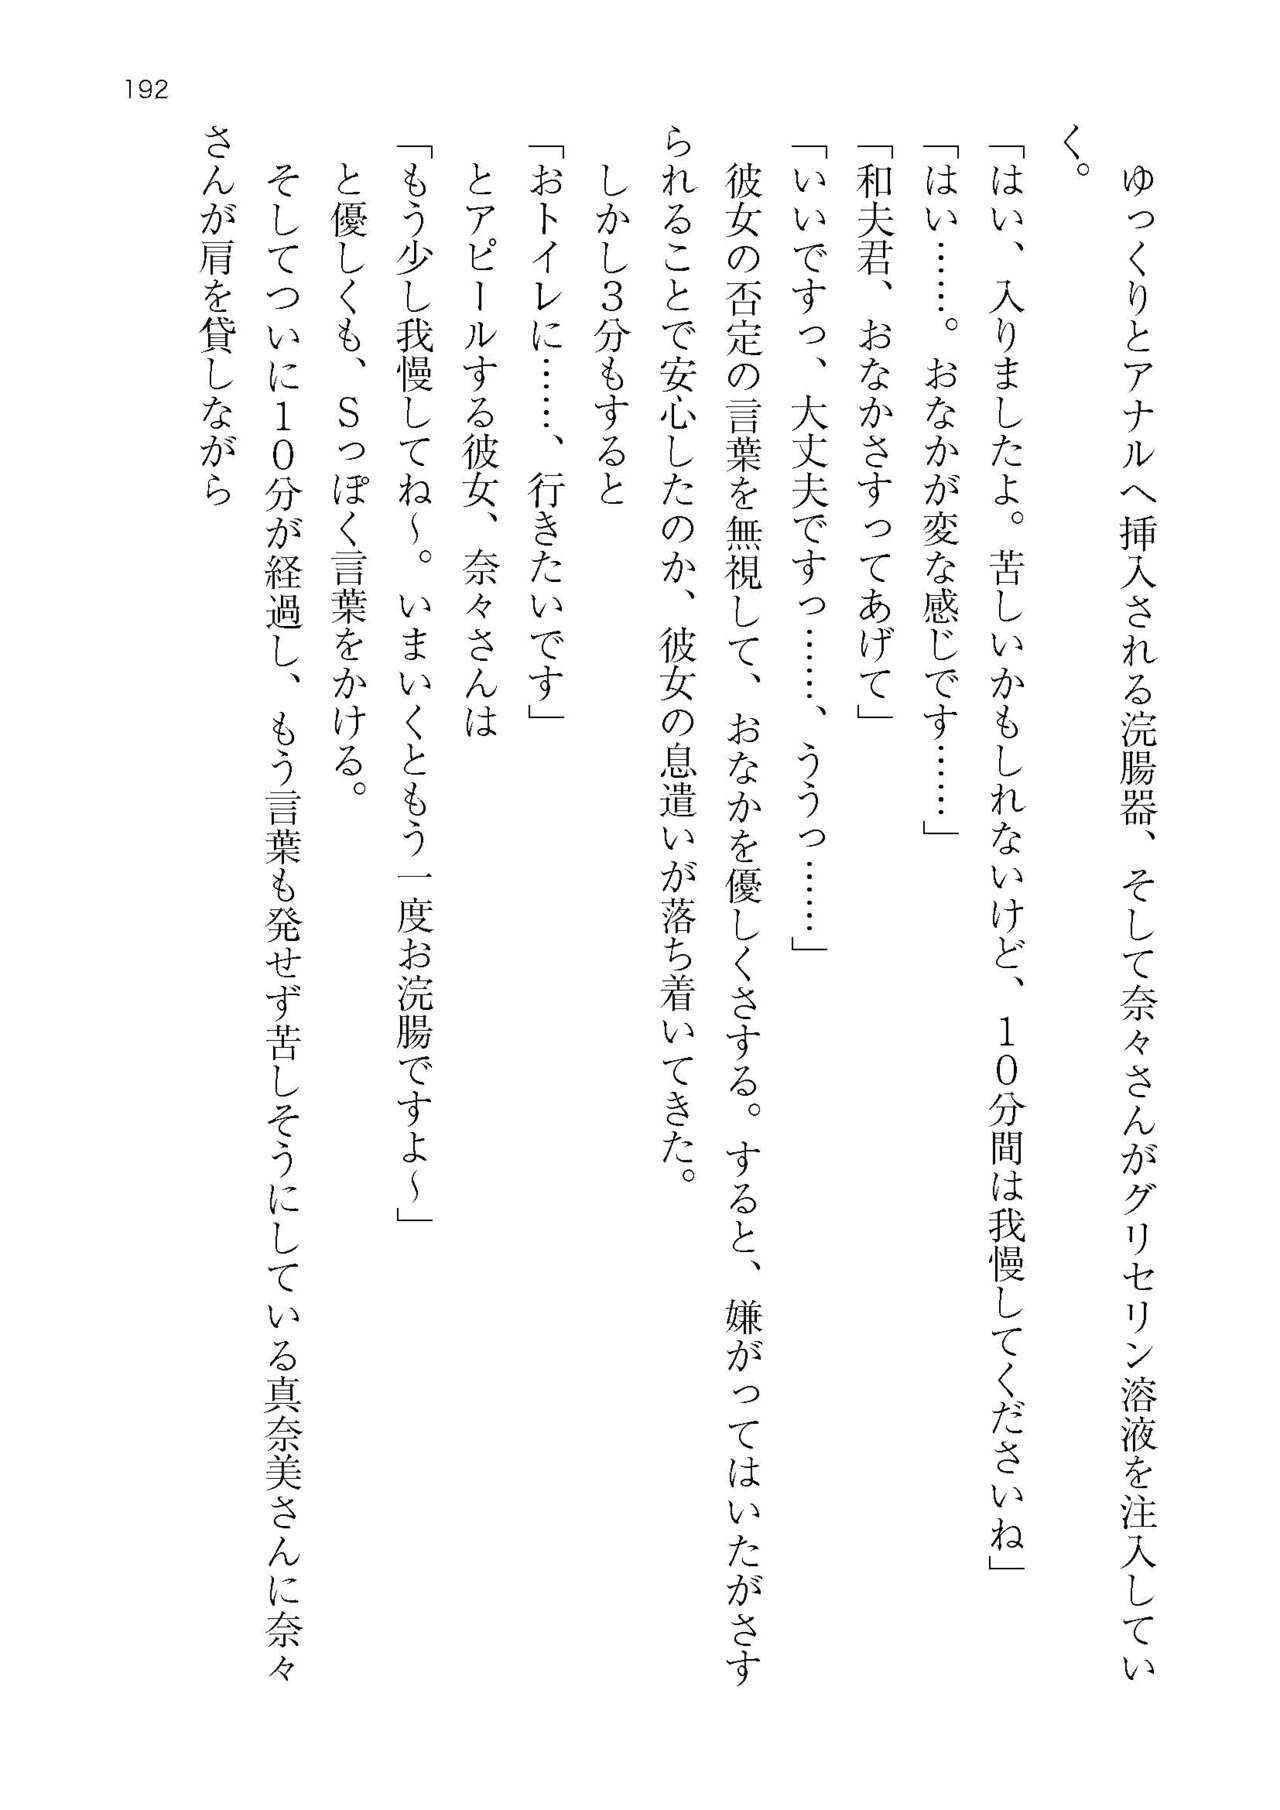 192
ゆっくりとアナルへ挿入される浣腸器、そして奈々さんがグリセリン溶液を注入してい
く。
「はい、入りましたよ。苦しいかもしれないけど、１０分間は我慢してくださいね」
「はい……。おなかが変な感じです……」
「和夫君、おなかさすってあげて」
「いいですっ、大丈夫ですっ……、ううっ……」
彼女の否定の言葉を無視して、おなかを優しくさする。すると、嫌がってはいたがさす
られることで安心したのか、彼女の息遣いが落ち着いてきた。
しかし３分もすると
「おトイレに……、行きたいです」
とアピールする彼女、奈々さんは
「もう少し我慢してね～。いまいくともう一度お浣腸ですよ～」
と優しくも、Ｓっぽく言葉をかける。
そしてついに１０分が経過し、もう言葉も発せず苦しそうにしている真奈美さんに奈々
さんが肩を貸しながら